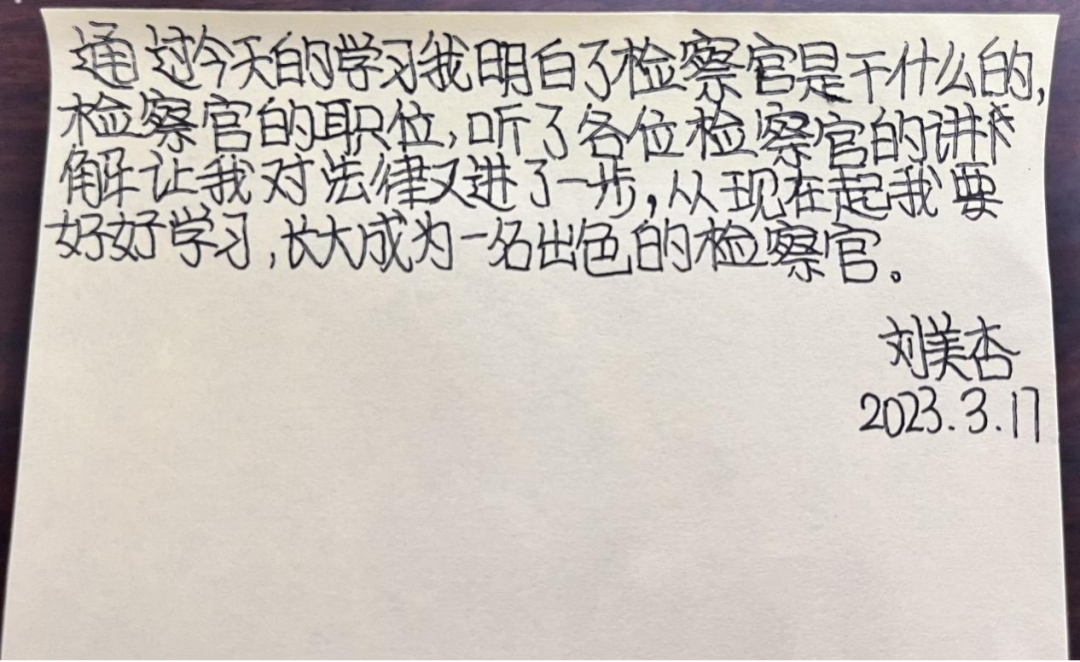 通过今天的学习我明白了检察官是干什么的,
检察官的职位,听了各位检察官的讲
解让我对法律又进了一步,从现在起我要
好好学习,长大成为一名出色的检察官。
刘美杏
2023.3.17